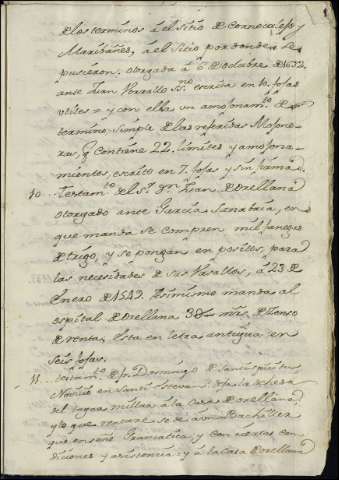 de los terminos à el Sitio de Cornocalejo y
Maribáñes, à el Sitio por donde se
pusieron, otorgada à 6 de Octubre de 1632
ante Juan Ss.no escrita en 10 fojas
utiles y con ella un amojonam.to de
termino, simple de las
q contiene 22 limites y amojona-
mientos, escrito en 7 fojas y sin firma
10 Testam.to del S.r Dn. Juan de Orellana
otorgado ante García Sanabria, en
que manda se compren mil fanegas
de trigo, y se pongan en positos, para
las necesidades de sus Vasallos, à 23 de
Enero de 1549. Asimismo manda al
ospital de Orellana mrs. de Zenso
de renta, esta en letra antigua en
seis fojas.
11 de Domingo de
en Santi de la
à la Casa de Orellana
y lo que se dè à un Bachiller
que enseñe Gramatica, y con ciertas con
diciones y à la Casa Orellana